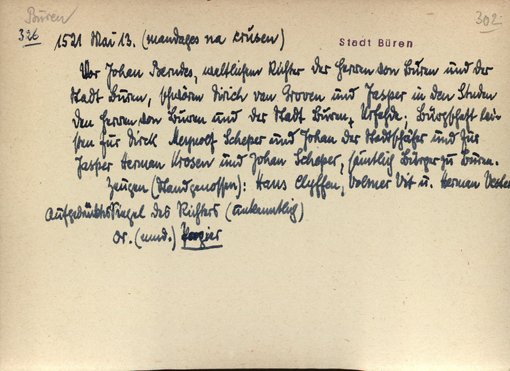 Büren
326
302.
1521 Mai 13. (mandages na crusen)
Stadt Büren
Vor Johan Berndes, weltlichem Richter der Herren von Büren und der
Stadt Büren, schwören Dirich van Groven und Jasper in den Linden
den Herren von Büren und der Stadt Büren, Urfehde. Bürgschaft lei-
sten für Dirck Meynolf Scheper und Johan der Stadtschäfer und für
Jasper Herman Krosen und Johan Scheper, sämtlich Bürger zu Büren.
Zeugen (Standgenossen): Hans Clyffen, Volmer Vit u. Herman
Aufgedrücktes Siegel des Richters (unkenntlich)
Or. (mnd.) Papier